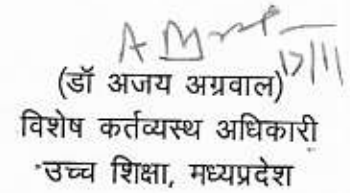 17/11
(डॉ अजय अग्रवाल)
विशेष कर्तव्यस्थ अधिकारी
उच्च शिक्षा, मध्यप्रदेश